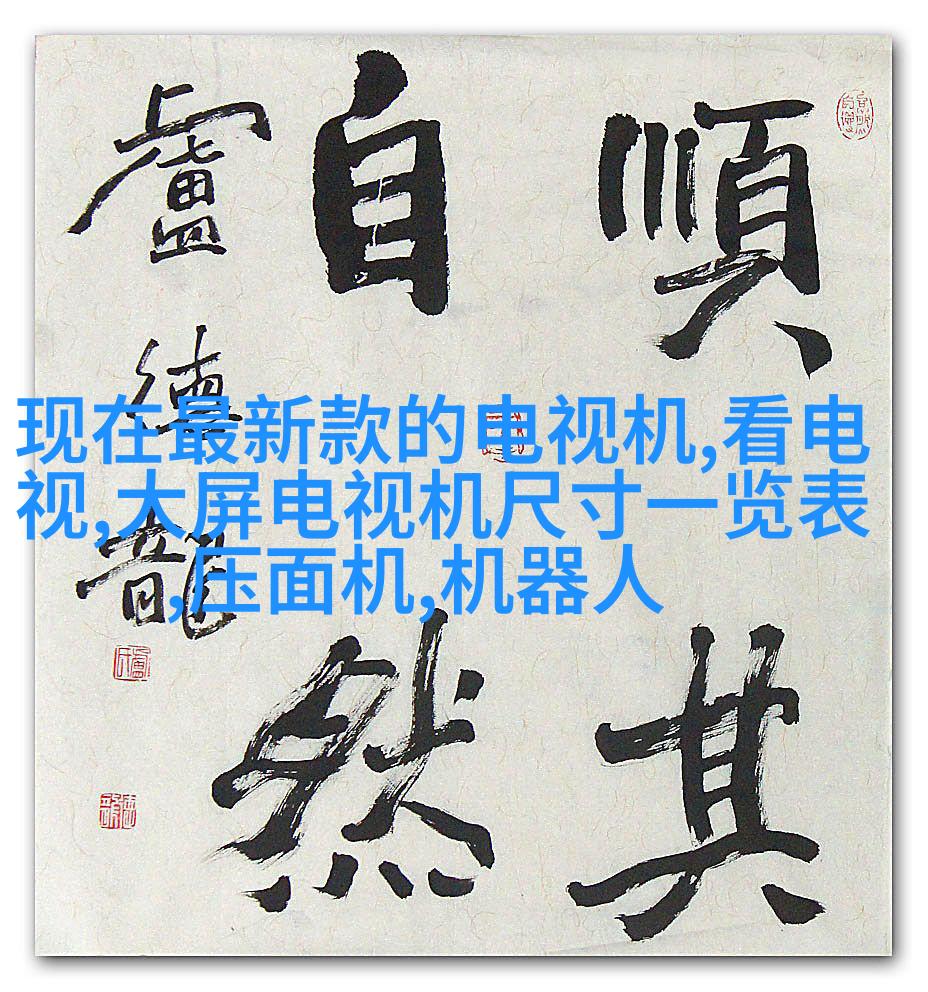 順其
自然
盧德龍
现在最新款的电视机,看电
视,大屏电视机尺寸一览表
,压面机,机器人